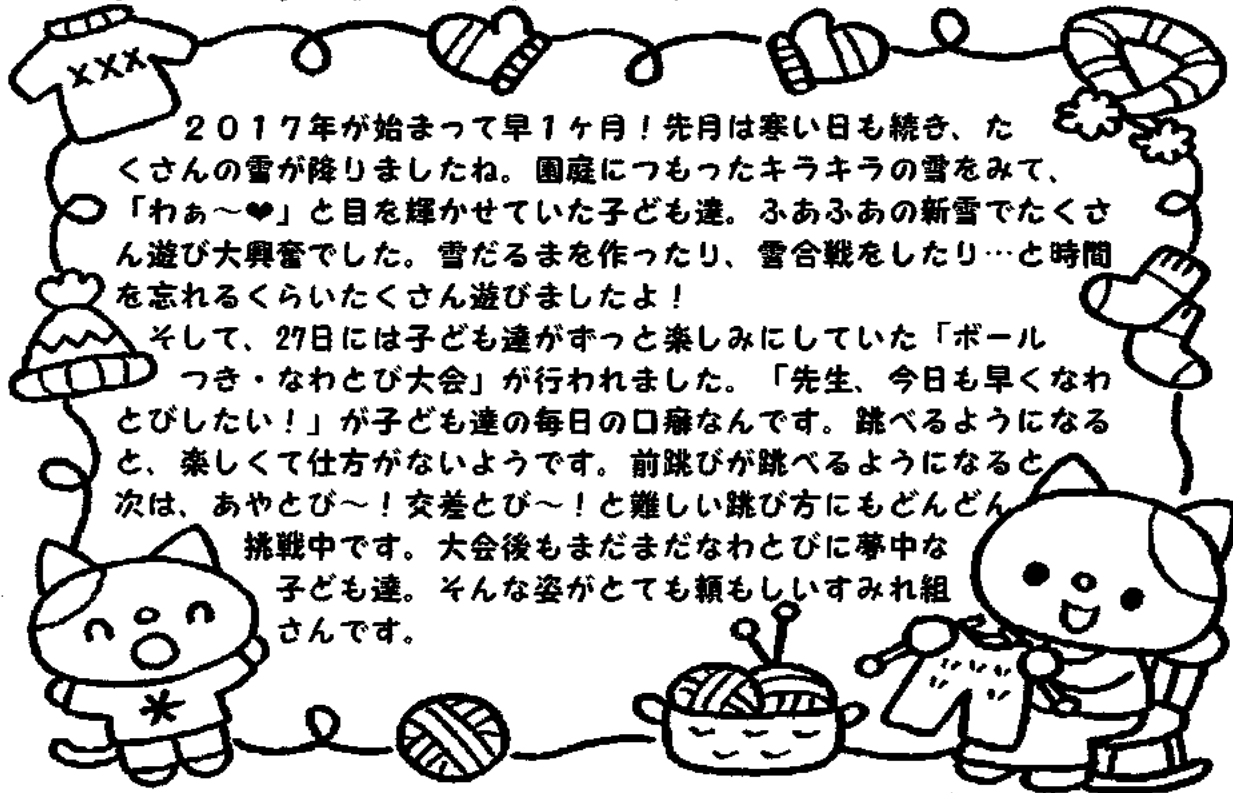 ２０１７年が始まって早１ヶ月！先月は寒い日も続き、た
くさんの雪が降りましたね。園庭につもったキラキラの雪をみて、
「わぁ～❤」と目を輝かせていた子ども達。ふあふあの新雪でたくさ
ん遊び大興奮でした。雪だるまを作ったり、雪合戦をしたり…と時間
を忘れるくらいたくさん遊びましたよ！
そして、27日には子ども達がずっと楽しみにしていた「ボール
つき・なわとび大会」が行われました。「先生、今日も早くなわ
とびしたい！」が子ども達の毎日の口癖なんです。跳べるようになる
と、楽しくて仕方がないようです。前跳びが跳べるようになると
次は、あやとび～！交差とび～！と難しい跳び方にもどんどん
挑戦中です。大会後もまだまだなわとびに夢中な
子ども達。そんな姿がとても頼もしいすみれ組
さんです。